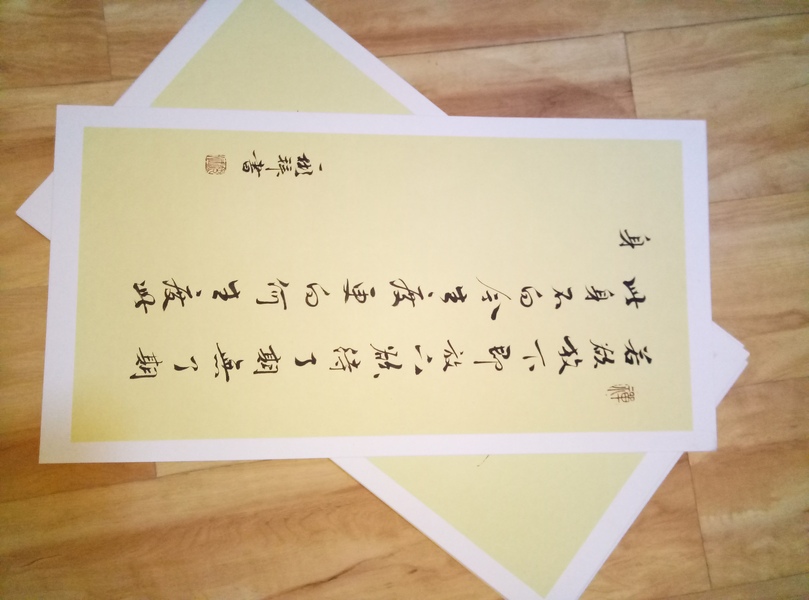 禪
若欲放下即放下欲待了期無了期
此身不向今生度更向何生度此
身
書